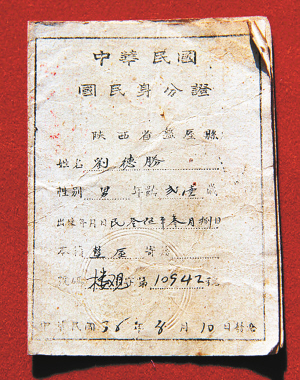 中華民國
國民身分證
陝西省盩厔縣
姓名 劉德勝
性別 男 年齡 歲
出生年月日 民 年叁月捌日
本籍 盩厔 寄籍
號碼 樓觀字第10942號
中華民國36年 月10日